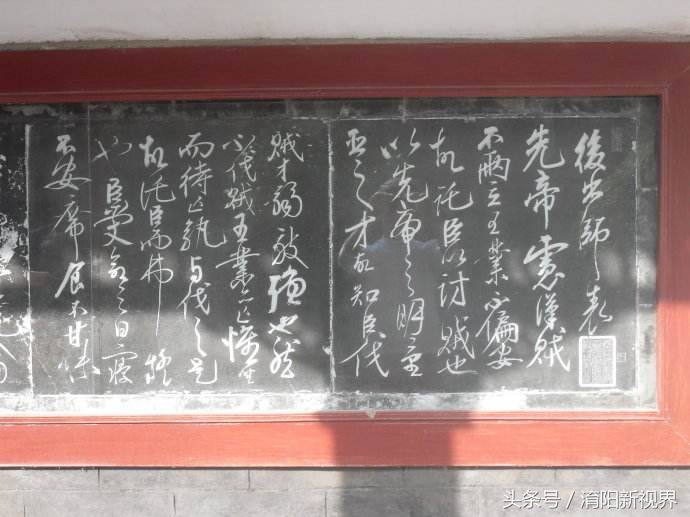 後出師表
先帝慮漢賊
不兩立王業不偏安
故託臣以討賊也
以先帝之明量
臣之才故知臣伐
賊才弱敵強也然
不伐賊王業亦亡惟坐
而待亡孰与伐之是
故託臣而弗疑
也臣受命之日寢
不安席食不甘味
头条号 / 淯阳新视界